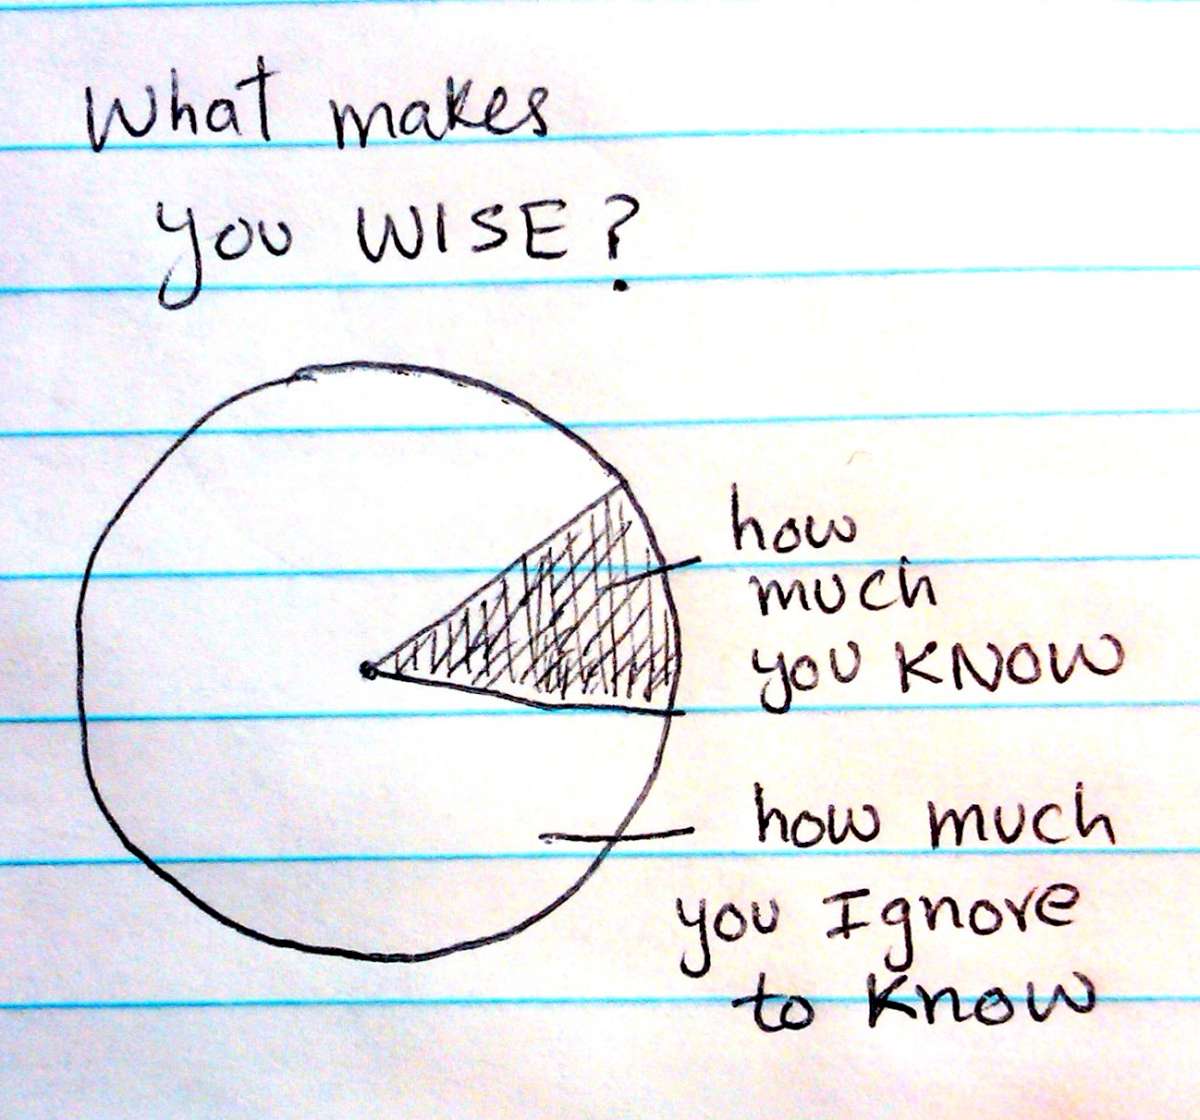 What makes
you WISE?
how
much
you KNOW
how much
you Ignore
to Know